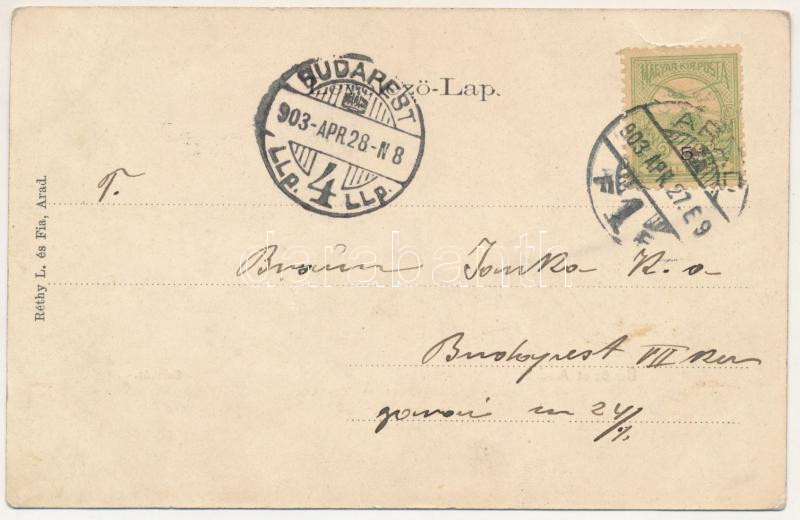 BUDAPEST
903-APR.28-N8
4
LLp. LLp.
zö-Lap.
MAGYAR·KIR·POSTA
ARAD
903 APR. 27. E9
F 1 F
T.
Braun Janka K. a
Budapest VII ker
24/
Réthy L. és Fia, Arad.
darabanth